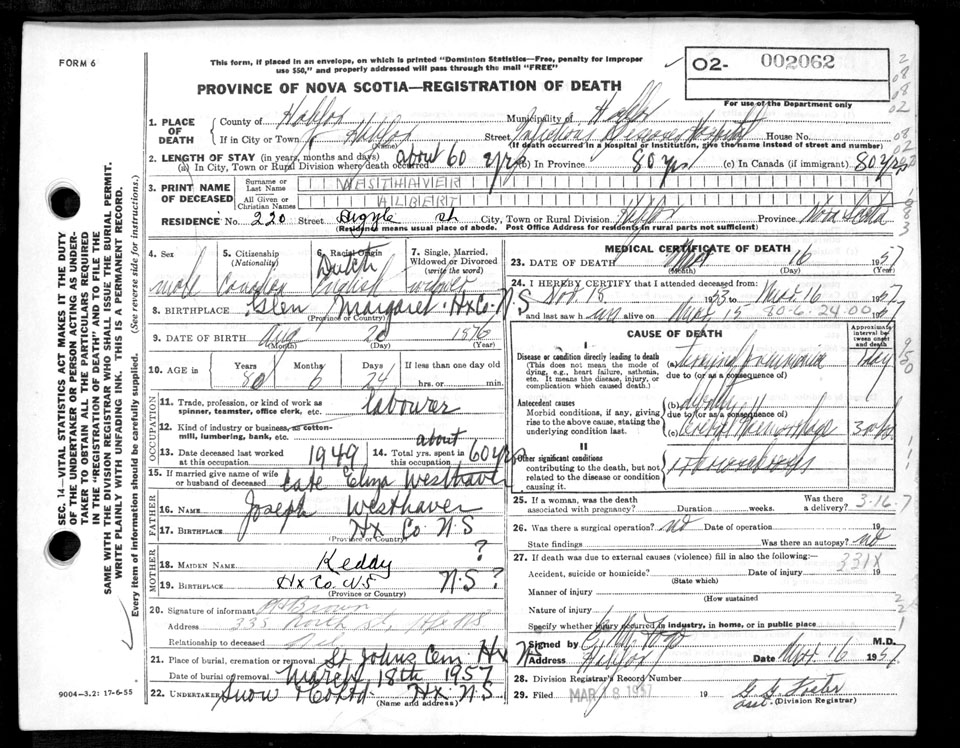 FORM 6
This form, if placed in an envelope, on which is printed "Dominion Statistics—Free, penalty for improper
use $50," and properly addressed will pass through the mail "FREE"
O2- 002062
For use of the Department only
PROVINCE OF NOVA SCOTIA—REGISTRATION OF DEATH
1. PLACE OF DEATH County of Halifax Municipality of Halifax
If in City or Town Halifax (Name) Street Hospital House No.
(If death occurred in a Hospital or Institution, give the name instead of street and number)
2. LENGTH OF STAY (in years, months and days)
(a) In City, Town or Rural Division where death occurred about 60 yrs (b) In Province 80 yrs (c) In Canada (if immigrant) 80 yrs
3. PRINT NAME OF DECEASED Surname or Last Name WESTHAVER
All Given or Christian Names ALBERT
RESIDENCE No. 220 Street Argyle st City, Town or Rural Division Halifax Province Nova Scotia
(Residence means usual place of abode. Post Office Address for residents in rural parts not sufficient)
4. Sex male
5. Citizenship (Nationality) Canadian
6. Racial Origin Dutch English
7. Single, Married, Widowed or Divorced (write the word)
8. BIRTHPLACE Glen Margaret Hx Co. N S
(Province or Country)
9. DATE OF BIRTH Aug (Month) 20 (Day) 1876 (Year)
10. AGE in Years 80 Months 6 Days 24 If less than one day old hrs. or min.
OCCUPATION
11. Trade, profession, or kind of work as spinner, teamster, office clerk, etc. labourer
12. Kind of industry or business, as cotton-mill, lumbering, bank, etc.
13. Date deceased last worked at this occupation 1949 14. Total yrs. spent in this occupation about 60 yrs
15. If married give name of wife or husband of deceased Cate Eliza Westhaver
FATHER
16. NAME Joseph Westhaver
17. BIRTHPLACE Hx Co. N S
(Province or Country)
MOTHER
18. MAIDEN NAME Keddy ?
19. BIRTHPLACE Hx Co. N S N. S ?
(Province or Country)
20. Signature of informant Brown
Address 335 North St, Hx N S
Relationship to deceased
21. Place of burial, cremation or removal St Johns Cem. Hx N S
Date of burial or removal March 18th 1957
22. UNDERTAKER Snow Hx N. S
(Name and address)
9004-3.2: 17-6-55
MEDICAL CERTIFICATE OF DEATH
23. DATE OF DEATH Mar (Month) 16 (Day) 1957 (Year)
24. I HEREBY CERTIFY that I attended deceased from:
Nov. 15 1953 to Mar. 16 1957
and last saw h alive on Mar. 15 80-6-24-00 1957
CAUSE OF DEATH
Approximate interval between onset and death
Disease or condition directly leading to death
(This does not mean the mode of dying, e.g., heart failure, asthenia, etc. It means the disease, injury, or complication which caused death.)
(a) terminal pneumonia 1 day
due to (or as a consequence of)
Antecedent causes
Morbid conditions, if any, giving rise to the above cause, stating the underlying condition last.
(b)
due to (or as a consequence of)
(c) Cerebral Hemorrhage
Other significant conditions
contributing to the death, but not related to the disease or condition causing it.
25. If a woman, was the death associated with pregnancy? Duration weeks. Was there a delivery? 3-16-7
26. Was there a surgical operation? no Date of operation 19
State findings Was there an autopsy? no
27. If death was due to external causes (violence) fill in also the following:— 331X
Accident, suicide or homicide? Date of injury 19
(State which)
Manner of injury
(How sustained
Nature of injury
Specify whether injury occurred in industry, in home, or in public place
Signed by M.D.
Address Halifax Date Mar. 16 1957
28. Division Registrar's Record Number
29. Filed MAR 18 1957 19 G. S. Foster
asst. (Division Registrar)
SEC. 14—VITAL STATISTICS ACT MAKES IT THE DUTY
OF THE UNDERTAKER OR PERSON ACTING AS UNDER-
TAKER TO OBTAIN ALL THE PARTICULARS REQUIRED
IN THE "REGISTRATION OF DEATH" AND TO FILE THE
SAME WITH THE DIVISION REGISTRAR WHO SHALL ISSUE THE BURIAL PERMIT.
WRITE PLAINLY WITH UNFADING INK. THIS IS A PERMANENT RECORD.
Every item of information should be carefully supplied. (See reverse side for instructions.)